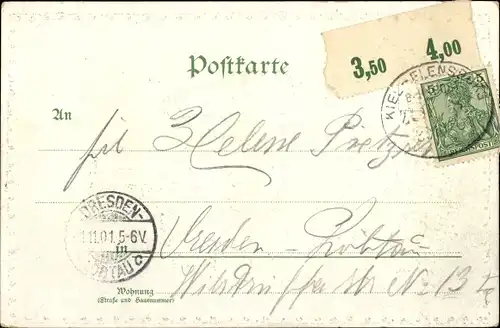 3,50 4,00
Postkarte
KIEL-FLENSBURG
5 5
REICHSPOST
An
Frl. Helene
DRESDEN-
1.11.01. 5-6V.
LÖBTAU c
in Dresden-Löbtau
Wilsdrufferstraße No 13
Wohnung
(Straße und Hausnummer)